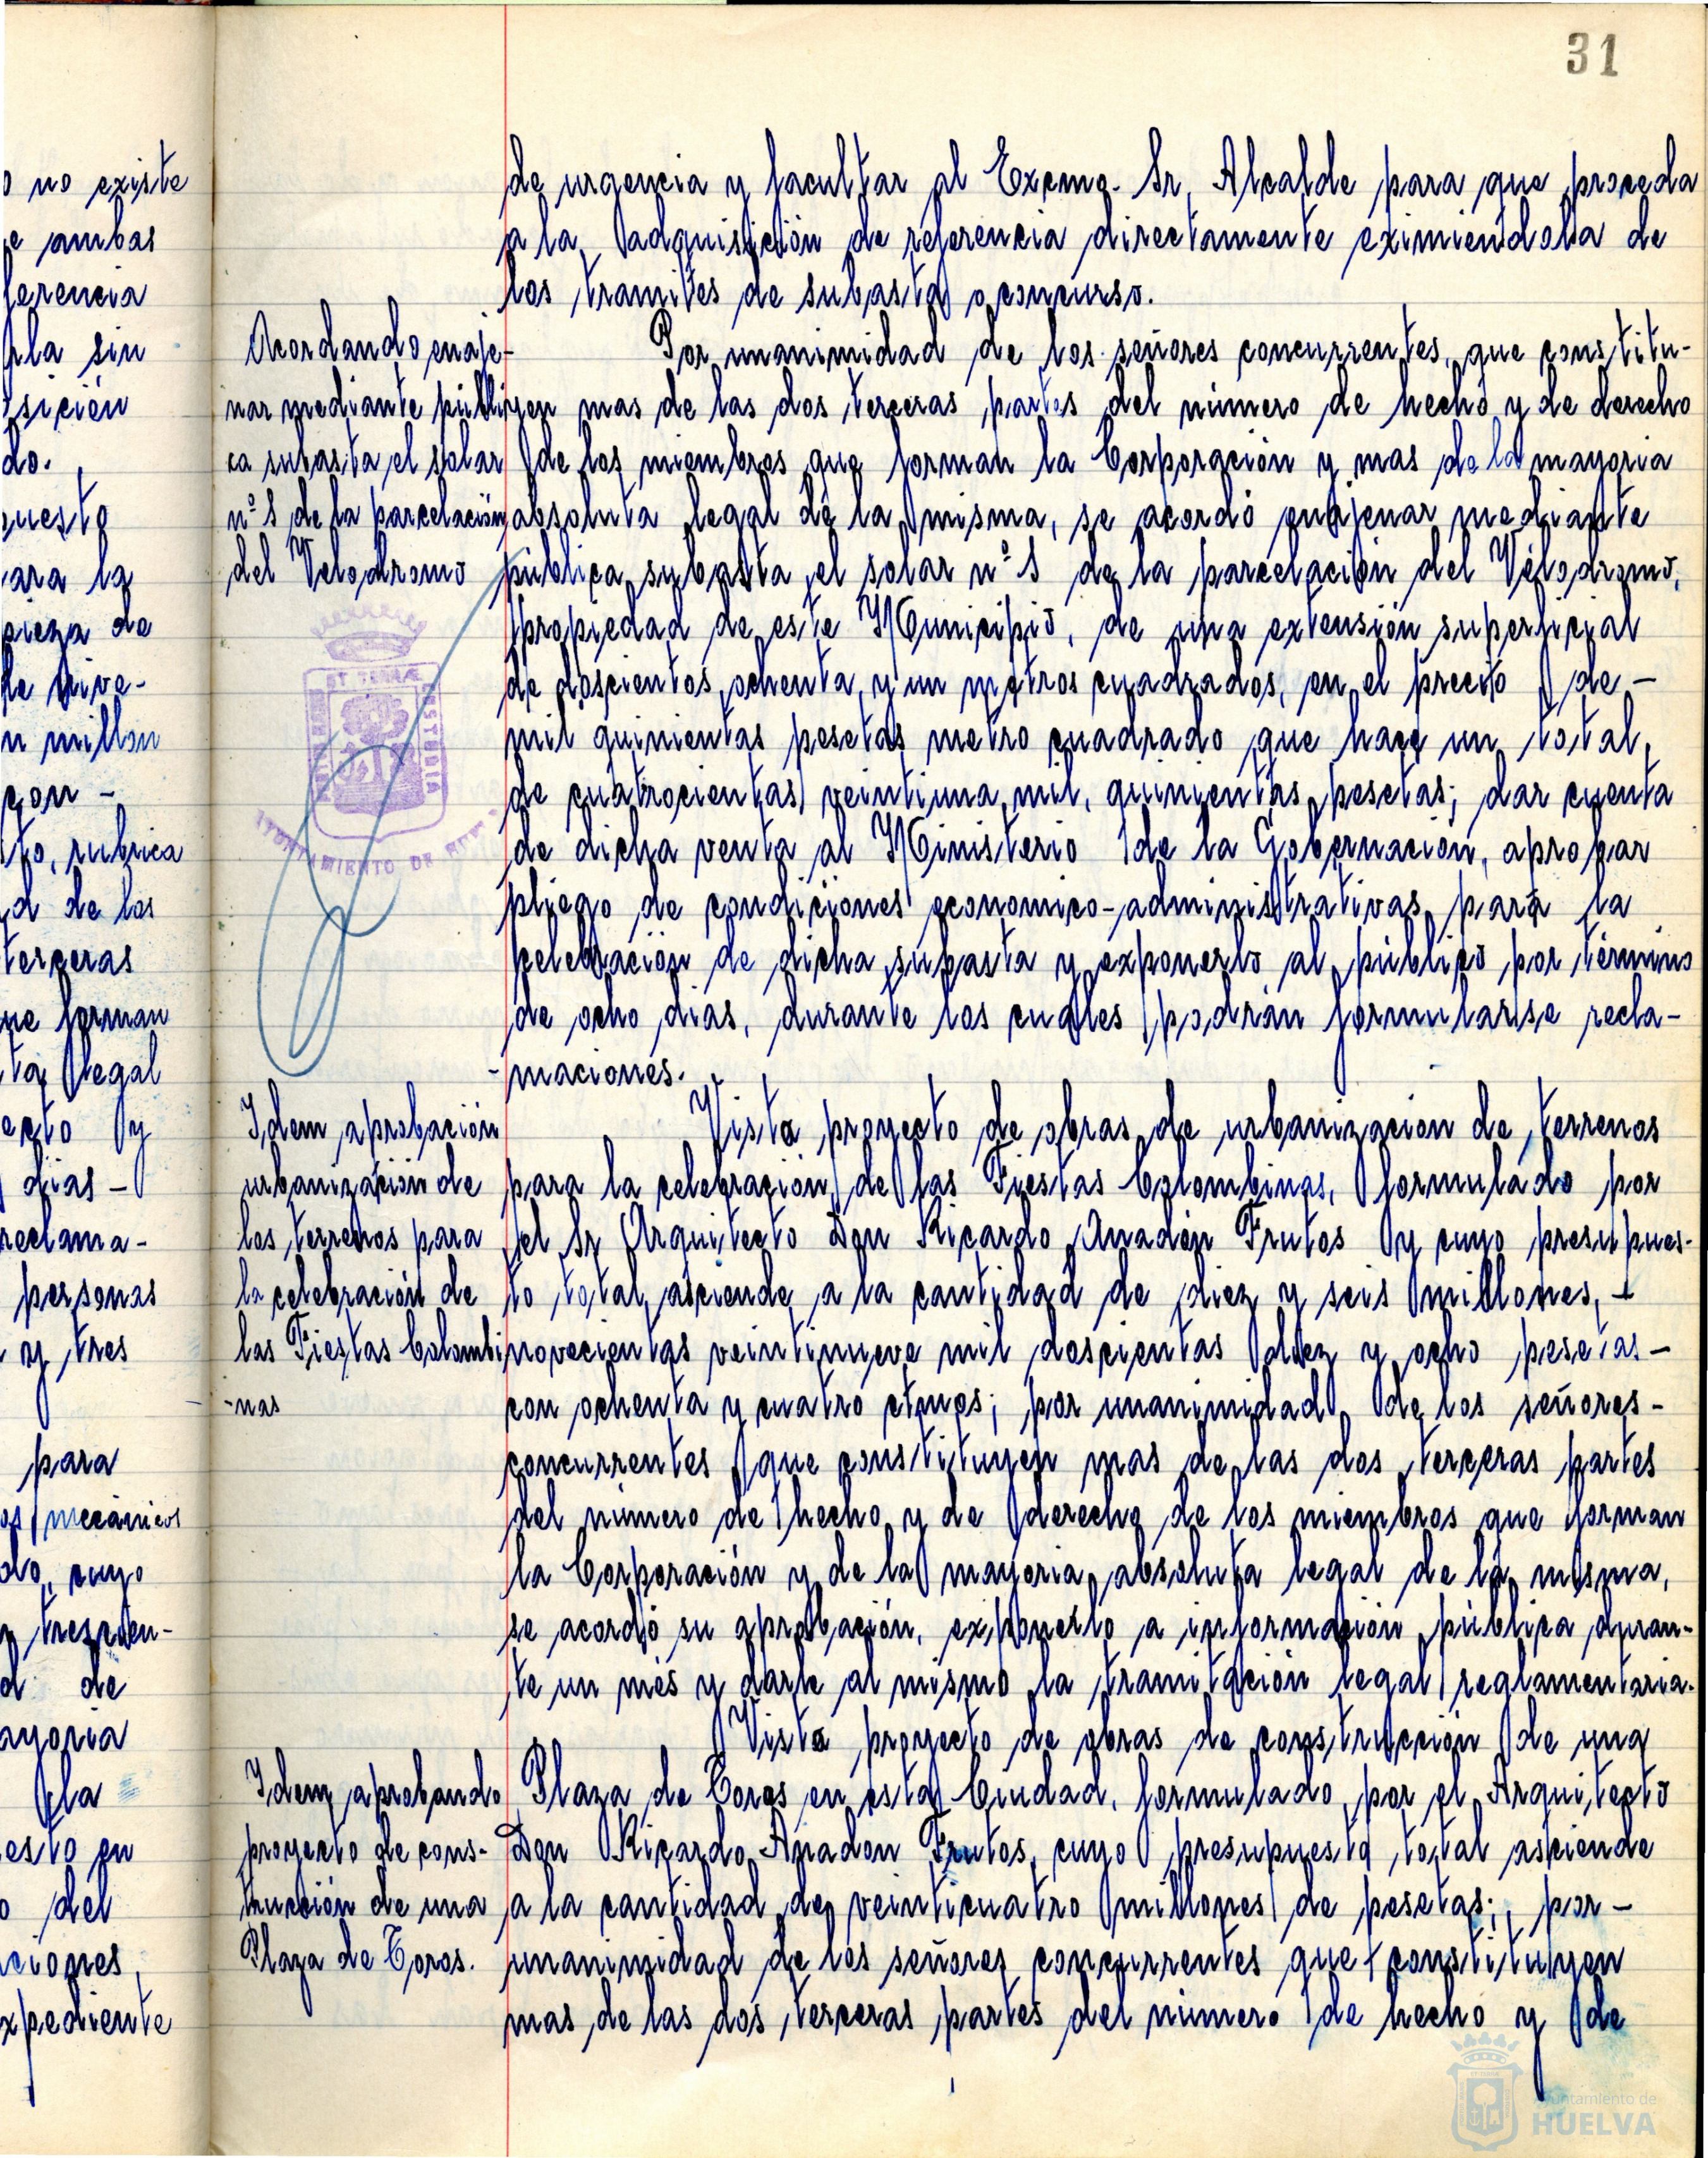 31
o no existe
e ambas
ferencia
sin
sición
do.
puesto
para la
pieza de
de nive-
n millon
con -
to, rubrica
d de los
terceras
ue forman
ta legal
ecto y
dias -
reclama-
personas
y tres
para
os mecánicos
do, cuyo
trescien-
d de
ayoria
la
esto en
o del
ciones,
xpediente
de urgencia y facultar al Excmo. Sr. Alcalde para que proceda
a la adquisición de referencia directamente eximiendola de
los tramites de subasta o concurso.
Acordando enaje-
nar mediante públi
ca subasta el solar
nº 1 de la parcelación
del Velodromo
Por unanimidad de los señores concurrentes, que constitu-
yen mas de las dos terceras partes del número de hecho y de derecho
de los miembros que forman la Corporación y mas de la mayoria
absoluta legal de la misma, se acordó enajenar mediante
pública subasta el solar nº 1 de la parcelación del Velodromo,
propiedad de este Municipio, de una extensión superficial
de doscientos ochenta y un metros cuadrados, en el precio de -
mil quinientas pesetas metro cuadrado que hace un total
de cuatrocientas veintiuna mil, quinientas pesetas; dar cuenta
de dicha venta al Ministerio de la Gobernación, aprobar
pliego de condiciones economico-administrativas para la
celebración de dicha subasta y exponerlo al público por término
de ocho dias, durante los cuales podrán formularse recla-
-maciones.
AYUNTAMIENTO DE
Idem aprobación
urbanización de
los terrenos para
la celebración de
las Fiestas Colombi
-nas
Visto proyecto de obras de urbanización de terrenos
para la celebración de las Fiestas Colombinas, formulado por
el Sr Arquitecto Don Ricardo Anadón Frutos y cuyo presupues-
to total asciende a la cantidad de diez y seis millones, -
novecientas veintinueve mil doscientas diez y ocho pesetas -
con ochenta y cuatro ctmos; por unanimidad de los señores -
concurrentes que constituyen mas de las dos terceras partes
del número de hecho y de derecho de los miembros que forman
la Corporación y de la mayoria absoluta legal de la misma,
se acordó su aprobación, exponerlo a información pública duran-
te un més y darle al mismo la tramitación legal reglamentaria.
Idem aprobando
proyecto de cons-
trucción de una
Plaza de Toros.
Visto proyecto de obras de construcción de una
Plaza de Toros en esta Ciudad, formulado por el Arquitecto
Don Ricardo Anadon Frutos, cuyo presupuesto total asciende
a la cantidad de veinticuatro millones de pesetas; por -
unanimidad de los señores concurrentes que constituyen
mas de las dos terceras partes del número de hecho y de
Ayuntamiento de
HUELVA